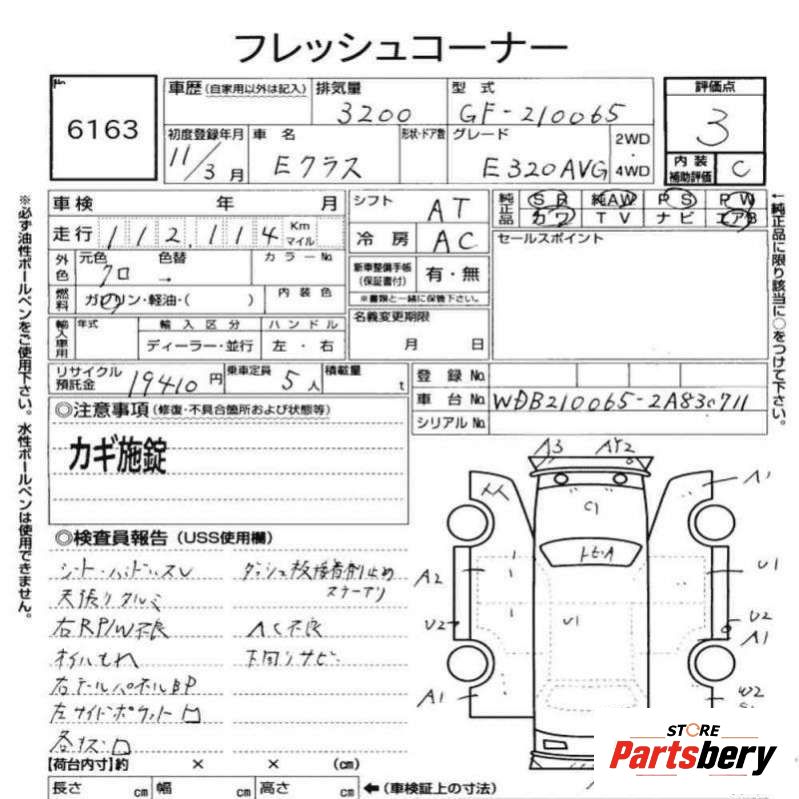 フレッシュコーナー
No.
6163
車歴(自家用以外は記入)
排気量
3200
型式
GF-210065
評価点
3
初度登録年月
11/3月
車名
Eクラス
形状・ドア数
グレード
E320AVG
2WD
・
4WD
内装
補助評価
C
車検 年 月
シフト
AT
純正品
SR 純AW PS PW
カワ TV ナビ エアB
走行 112,114 Km
マイル
冷房
AC
セールスポイント
外色
元色
クロ
色替
→
カラーNo.
新車整備手帳
(保証書付)
有・無
※書類と一緒に保管下さい。
燃料
ガソリン・軽油・( )
内装色
輸入車用
年式
輸入区分
ハンドル
ディーラー・並行
左・右
名義変更期限
月 日
リサイクル
預託金
19410円
乗車定員
5人
積載量
t
登録No.
車台No. WDB210065-2A830711
シリアルNo.
◎注意事項(修復・不具合箇所および状態等)
カギ施錠
◎検査員報告(USS使用欄)
シート・ハンドルスレ
天張りタルミ
右RP/W不良
オイルもれ
右テールパネルBP
左サイドポケットロ
各キズ・ロ
ダッシュ板接着剤止め
ステーアリ
AC不良
下回りサビ
A3
AY2
A1
C1
トビ・A
A2
U1
U1
U2
U2
A1
A1
W2
【荷台内寸】約 × × (cm)
長さ cm 幅 cm 高さ cm
←(車検証上の寸法)
※必ず油性ボールペンをご使用下さい。水性ボールペンは使用できません。
←純正品に限り該当に○をつけて下さい。
STORE
Partsbery